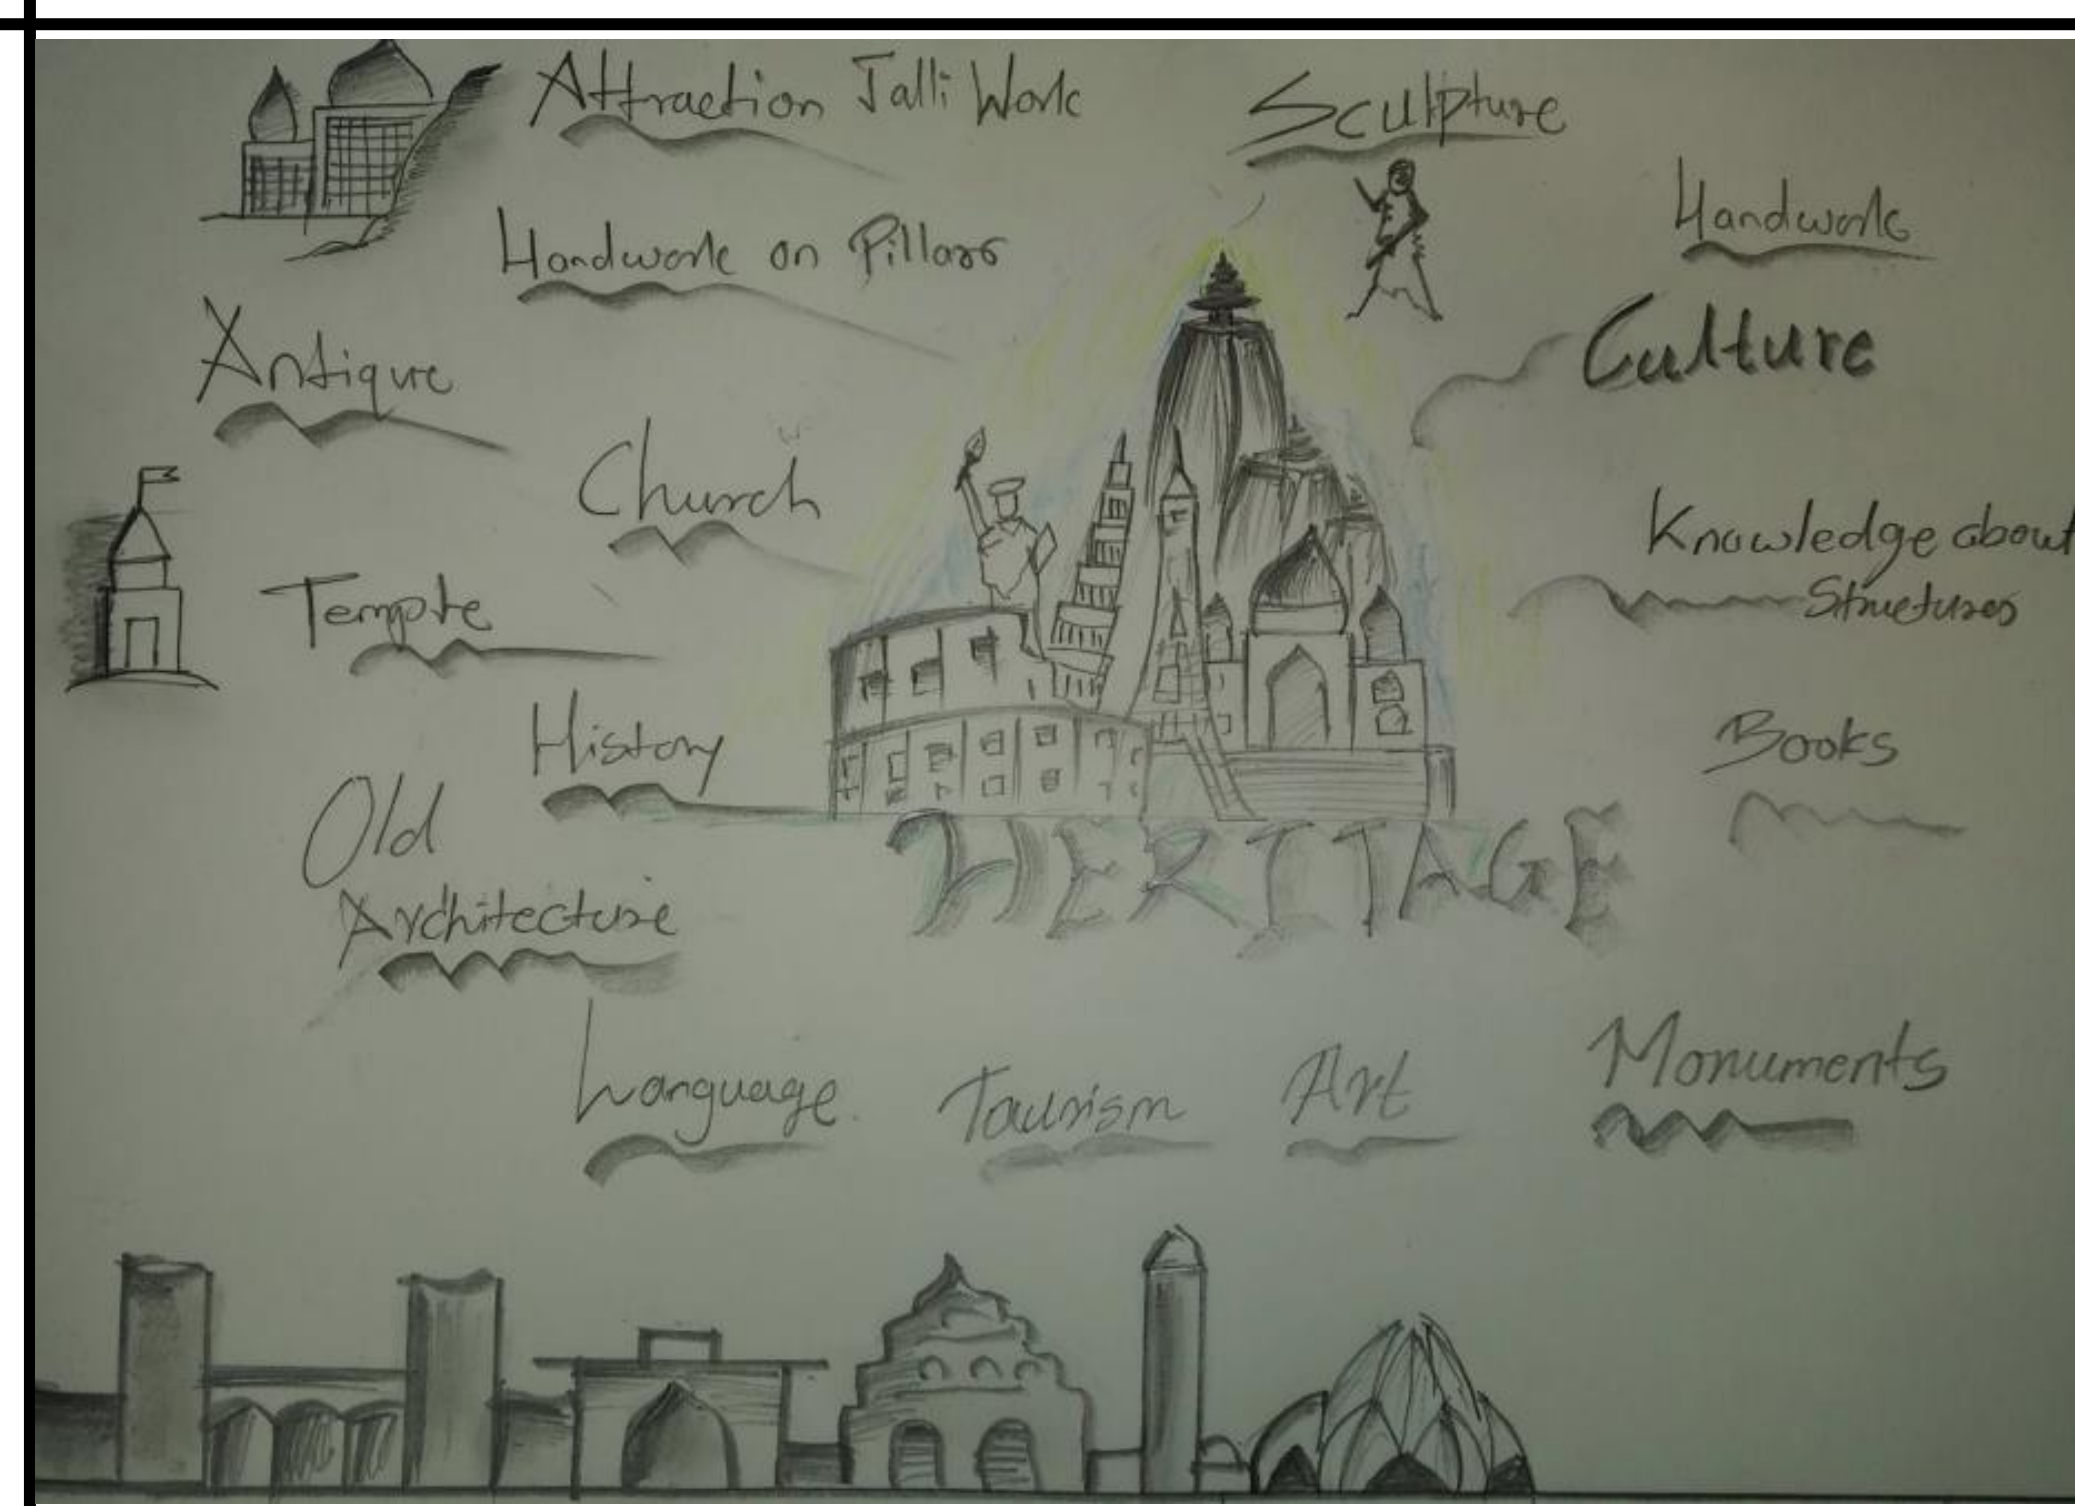 Attraction Jalli Work
Sculpture
Handwork
Handwork on Pillars
Culture
Antique
Church
Knowledge about
Structures
Temple
History
Books
Old
Architecture
HERITAGE
Language
Tourism
Art
Monuments